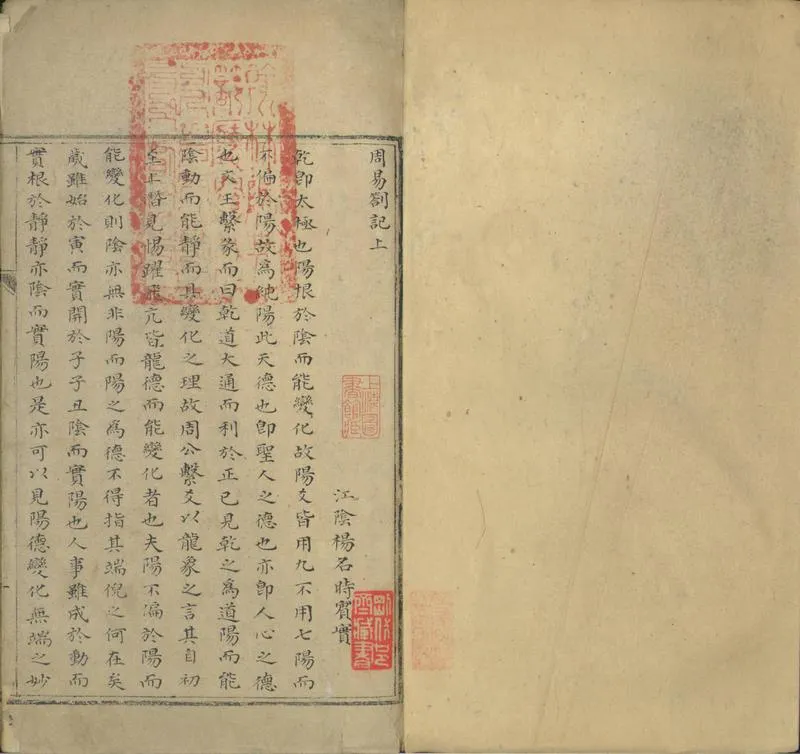 周易劄記上
江陰楊名時賓實
乾卽太極也陽根於陰而能變化故陽爻皆用九不用七陽而
不偏於陽故爲純陽此天德也卽聖人之德也亦卽人心之德
也文王繫彖而曰乾道大通而利於正已見乾之爲道陽而能
陰動而能靜而具變化之理故周公繫爻以龍象之言其自初
至上潛見惕躍飛亢皆龍德而能變化者也夫陽不偏於陽而
能變化則陰亦無非陽而陽之爲德不得指其端倪之何在矣
歲雖始於寅而實開於子子丑陰而實陽也人事雖成於動而
實根於靜靜亦陰而實陽也是亦可以見陽德變化無端之妙
上海圖
書館藏